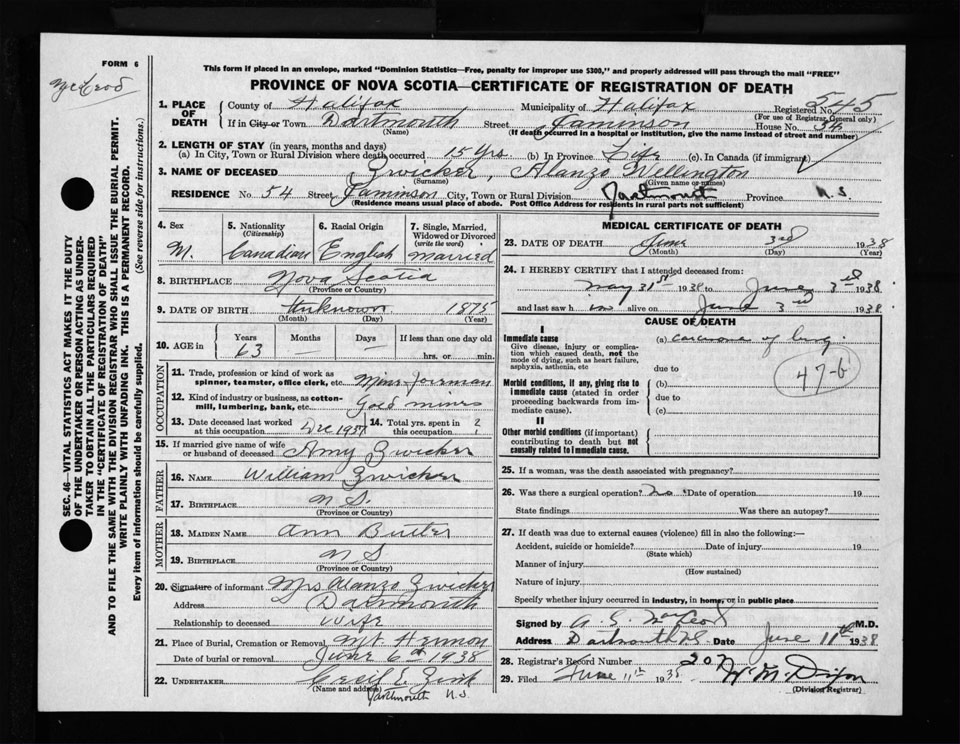 FORM 6
This form if placed in an envelope, marked "Dominion Statistics—Free, penalty for improper use $300," and properly addressed will pass through the mail "FREE"
McLeod
PROVINCE OF NOVA SCOTIA—CERTIFICATE OF REGISTRATION OF DEATH
1. PLACE OF DEATH
County of Halifax Municipality of Halifax Registered No. 545
(For use of Registrar General only)
If in City or Town Dartmouth Street Jaminson House No. 54
(Name) (If death occurred in a hospital or institution, give the name instead of street and number)
2. LENGTH OF STAY (in years, months and days)
(a) In City, Town or Rural Division where death occurred 15 Yrs. (b) In Province Life (c). In Canada (if immigrant)
3. NAME OF DECEASED Zwicker, Alanzo Wellington
(Surname) (Given name or names)
RESIDENCE No. 54 Street Jaminson City, Town or Rural Division Dartmouth Province N.S.
(Residence means usual place of abode. Post Office Address for residents in rural parts not sufficient)
4. Sex
M.
5. Nationality
(Citizenship)
Canadian
6. Racial Origin
English
7. Single, Married, Widowed or Divorced
(write the word)
Married
8. BIRTHPLACE Nova Scotia
(Province or Country)
9. DATE OF BIRTH Unknown 1875
(Month) (Day) (Year)
10. AGE in
Years Months Days If less than one day old
63 — — hrs. or min.
OCCUPATION
11. Trade, profession or kind of work as spinner, teamster, office clerk, etc. Mine Foreman
12. Kind of industry or business, as cotton-mill, lumbering, bank, etc. Gold mines
13. Date deceased last worked at this occupation Dec 1937
14. Total yrs. spent in this occupation
15. If married give name of wife or husband of deceased Amy Zwicker
FATHER
16. NAME William Zwicker
17. BIRTHPLACE N.S.
(Province or Country)
MOTHER
18. MAIDEN NAME Ann Butler
19. BIRTHPLACE N S
(Province or Country)
20. Signature of informant Mrs Alanzo Zwicker
Address Dartmouth
Relationship to deceased Wife
21. Place of Burial, Cremation or Removal Mt. Hermon
Date of burial or removal June 6th 1938
22. UNDERTAKER Cecil E. Zink
(Name and address)
Dartmouth N.S.
MEDICAL CERTIFICATE OF DEATH
23. DATE OF DEATH June 3rd 1938
(Month) (Day) (Year)
24. I HEREBY CERTIFY that I attended deceased from:
May 31st 1938 to June 3rd 1938
and last saw him alive on June 3rd 1938
CAUSE OF DEATH
I
Immediate cause
Give disease, injury or complication which caused death, not the mode of dying, such as heart failure, asphyxia, asthenia, etc
(a) carcinoma of lung.
due to
47-b
Morbid conditions, if any, giving rise to immediate cause (stated in order proceeding backwards from immediate cause).
(b)
due to
(c)
II
Other morbid conditions (if important) contributing to death but not causally related to immediate cause.
25. If a woman, was the death associated with pregnancy?
26. Was there a surgical operation? no Date of operation 19
State findings Was there an autopsy?
27. If death was due to external causes (violence) fill in also the following:—
Accident, suicide or homicide? Date of injury 19
(State which)
Manner of injury
(How sustained)
Nature of injury
Specify whether injury occurred in industry, in home, or in public place
Signed by A. S. MacLeod M.D.
Address Dartmouth N.S. Date June 11th 1938
28. Registrar's Record Number 207
29. Filed June 11th 1938 W. M. Dixon
(Division Registrar)
SEC. 46—VITAL STATISTICS ACT MAKES IT THE DUTY
OF THE UNDERTAKER OR PERSON ACTING AS UNDER-
TAKER TO OBTAIN ALL THE PARTICULARS REQUIRED
IN THE "CERTIFICATE OF REGISTRATION OF DEATH"
AND TO FILE THE SAME WITH THE DIVISION REGISTRAR WHO SHALL ISSUE THE BURIAL PERMIT.
WRITE PLAINLY WITH UNFADING INK. THIS IS A PERMANENT RECORD.
Every item of information should be carefully supplied. (See reverse side for instructions.)